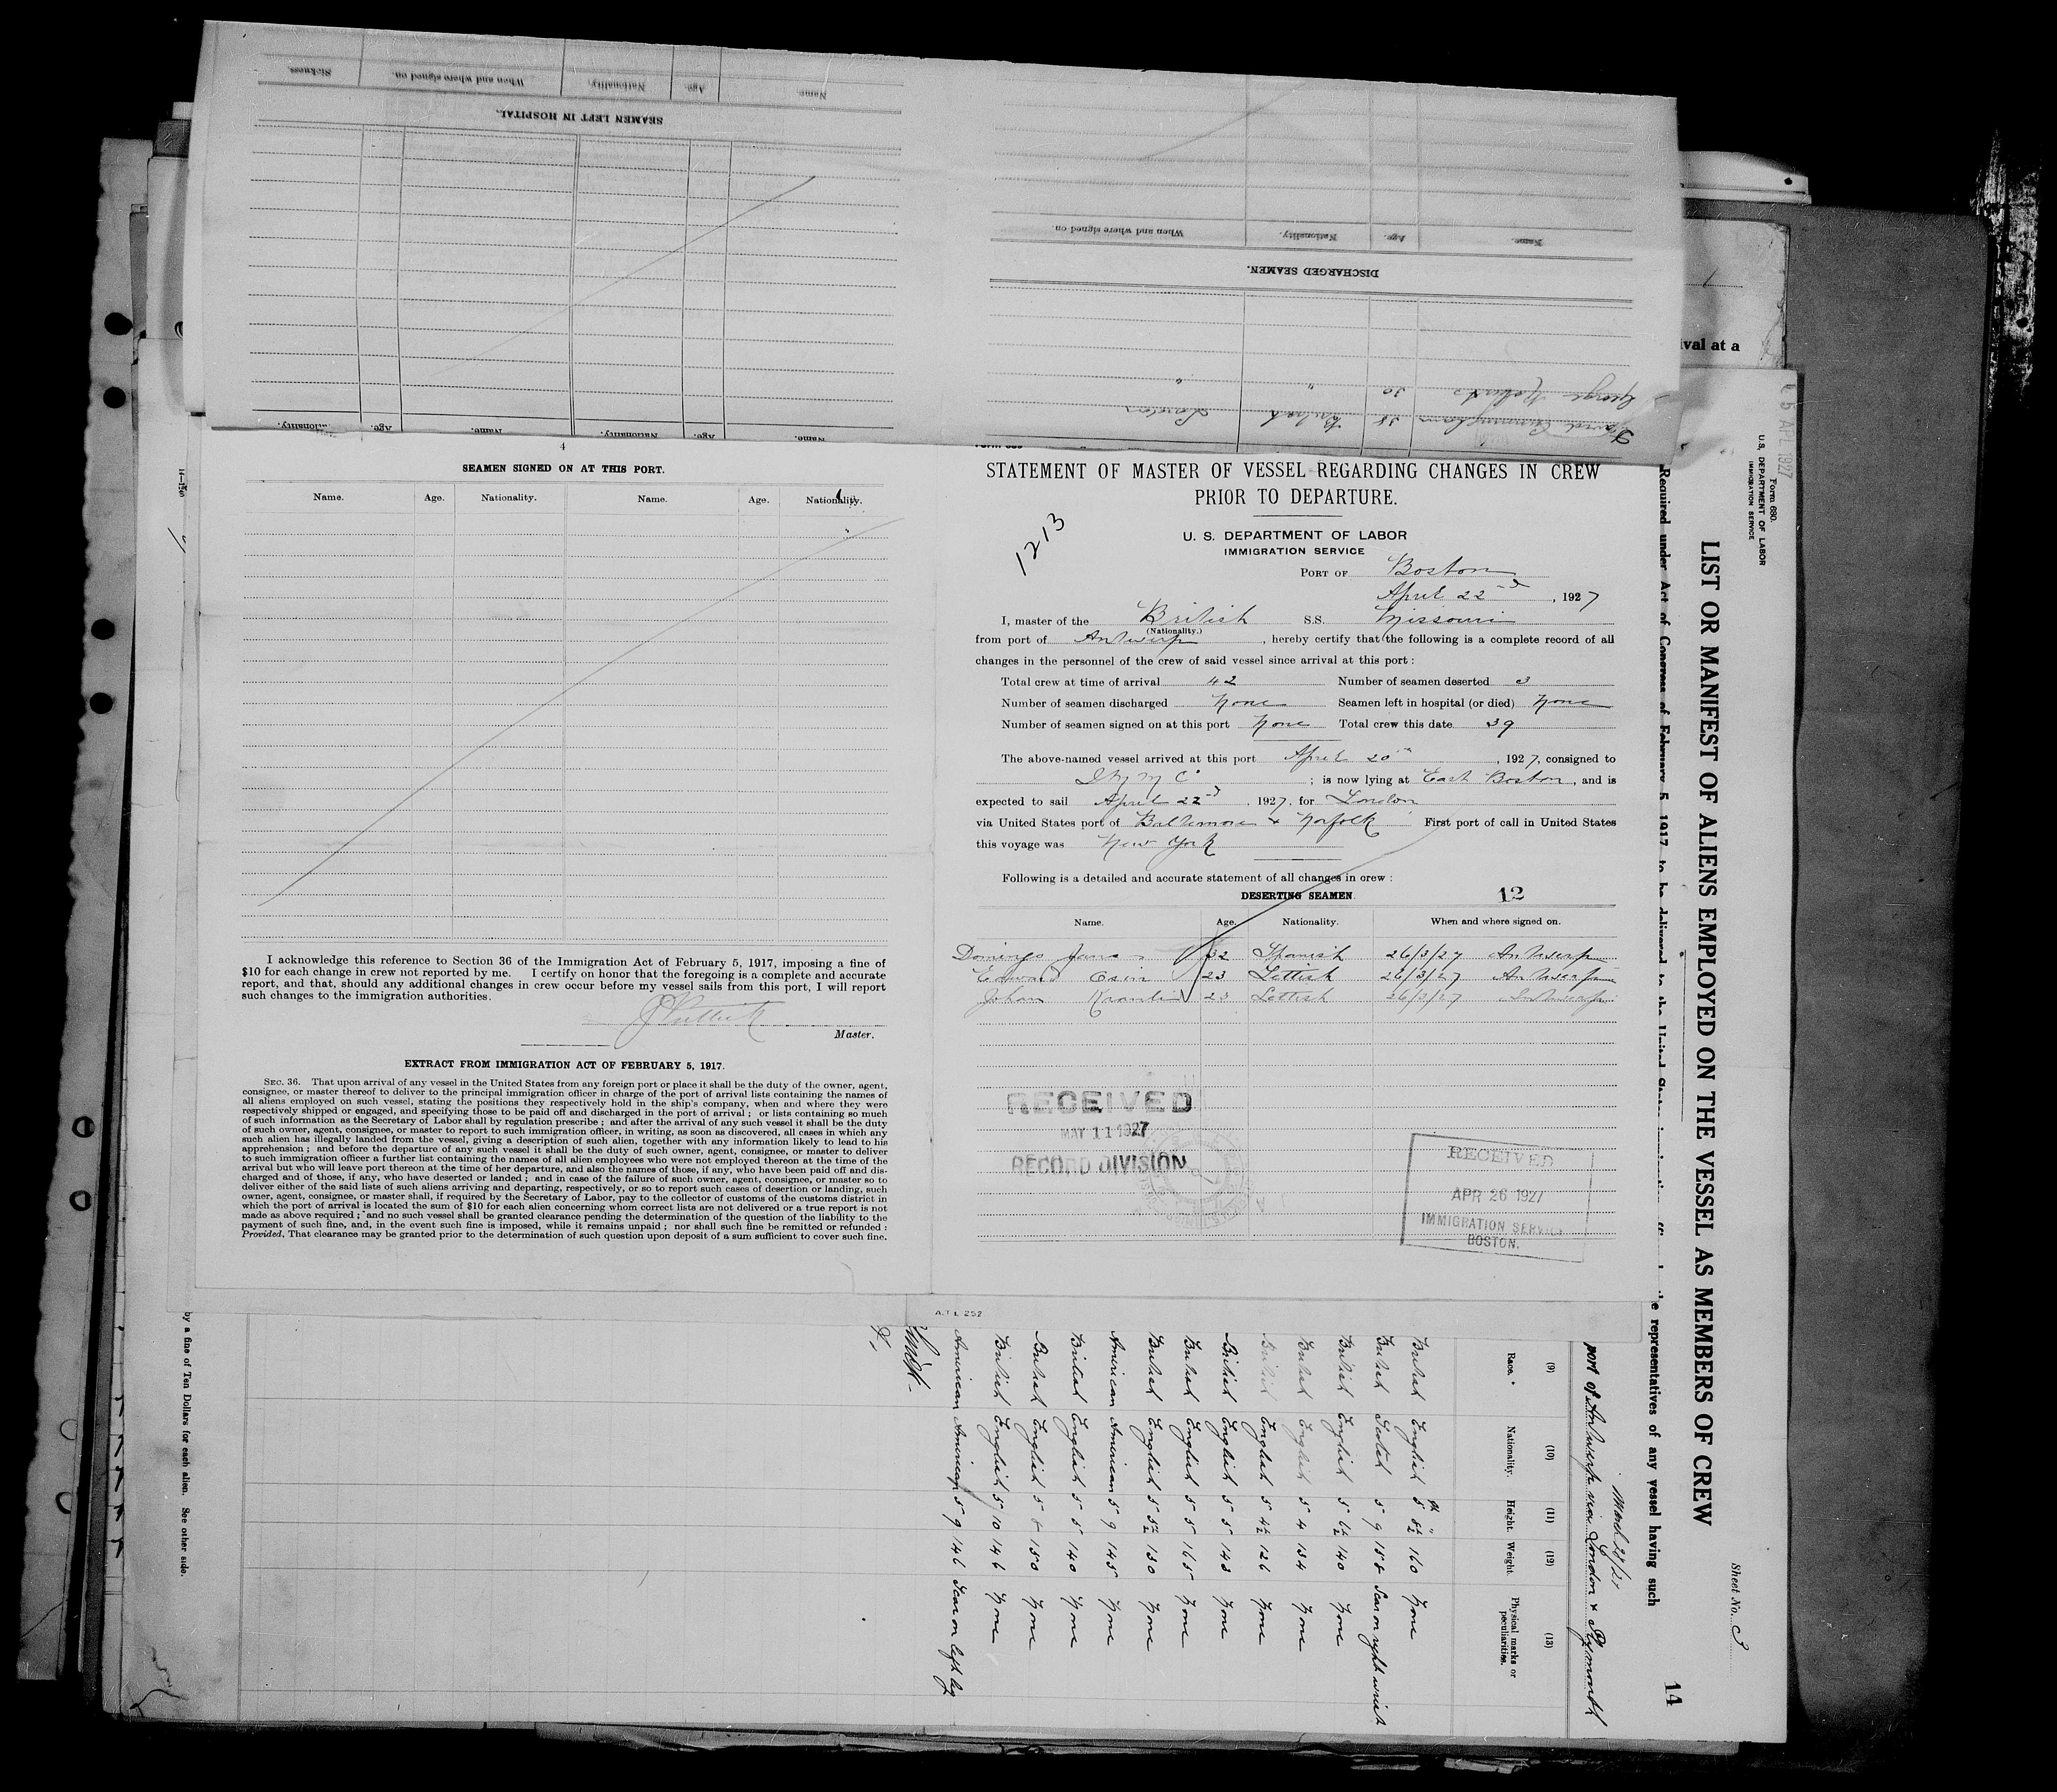 Sickness.
When and where signed on.
Nationality.
Age.
Name.
SEAMEN LEFT IN HOSPITAL.
When and where signed on
Nationality.
Age.
Name.
DISCHARGED SEAMEN.
George Roberts 30 " "
Cunningham 38 British London
Nationality. Age. Name. Nationality. Age. Name.
4
SEAMEN SIGNED ON AT THIS PORT.
Name. Age. Nationality. Name. Age. Nationality.
I acknowledge this reference to Section 36 of the Immigration Act of February 5, 1917, imposing a fine of
$10 for each change in crew not reported by me. I certify on honor that the foregoing is a complete and accurate
report, and that, should any additional changes in crew occur before my vessel sails from this port, I will report
such changes to the immigration authorities.
Master.
EXTRACT FROM IMMIGRATION ACT OF FEBRUARY 5, 1917.
SEC. 36. That upon arrival of any vessel in the United States from any foreign port or place it shall be the duty of the owner, agent,
consignee, or master thereof to deliver to the principal immigration officer in charge of the port of arrival lists containing the names of
all aliens employed on such vessel, stating the positions they respectively hold in the ship's company, when and where they were
respectively shipped or engaged, and specifying those to be paid off and discharged in the port of arrival; or lists containing so much
of such information as the Secretary of Labor shall by regulation prescribe; and after the arrival of any such vessel it shall be the duty
of such owner, agent, consignee, or master to report to such immigration officer, in writing, as soon as discovered, all cases in which any
such alien has illegally landed from the vessel, giving a description of such alien, together with any information likely to lead to his
apprehension; and before the departure of any such vessel it shall be the duty of such owner, agent, consignee, or master to deliver
to such immigration officer a further list containing the names of all alien employees who were not employed thereon at the time of the
arrival but who will leave port thereon at the time of her departure, and also the names of those, if any, who have been paid off and dis-
charged and of those, if any, who have deserted or landed; and in case of the failure of such owner, agent, consignee, or master so to
deliver either of the said lists of such aliens arriving and departing, respectively, or so to report such cases of desertion or landing, such
owner, agent, consignee, or master shall, if required by the Secretary of Labor, pay to the collector of customs of the customs district in
which the port of arrival is located the sum of $10 for each alien concerning whom correct lists are not delivered or a true report is not
made as above required; and no such vessel shall be granted clearance pending the determination of the question of the liability to the
payment of such fine, and, in the event such fine is imposed, while it remains unpaid; nor shall such fine be remitted or refunded:
Provided, That clearance may be granted prior to the determination of such question upon deposit of a sum sufficient to cover such fine.
STATEMENT OF MASTER OF VESSEL REGARDING CHANGES IN CREW
PRIOR TO DEPARTURE.
1213
U. S. DEPARTMENT OF LABOR
IMMIGRATION SERVICE
PORT OF Boston
April 22nd, 1927
I, master of the British S.S. Missouri
(Nationality.)
from port of Antwerp, hereby certify that the following is a complete record of all
changes in the personnel of the crew of said vessel since arrival at this port:
Total crew at time of arrival 42 Number of seamen deserted 3
Number of seamen discharged None Seamen left in hospital (or died) None
Number of seamen signed on at this port None Total crew this date 39
The above-named vessel arrived at this port April 20th, 1927, consigned to
I M M C; is now lying at East Boston, and is
expected to sail April 22nd, 1927, for London
via United States port of Baltimore & Norfolk First port of call in United States
this voyage was New York
Following is a detailed and accurate statement of all changes in crew:
DESERTING SEAMEN. 12
Name. Age. Nationality. When and where signed on.
Domingo 32 Spanish 26/3/27 Antwerp
Edward Osin 23 Lettish 26/3/27 Antwerp
Johan 23 Lettish 26/3/27 Antwerp
RECEIVED
MAY 11 1927
RECORD DIVISION
RECEIVED
APR 26 1927
IMMIGRATION SERVICE
BOSTON.
ival at a
5 APL 1927
Form 680.
U.S. DEPARTMENT OF LABOR
IMMIGRATION SERVICE
LIST OR MANIFEST OF ALIENS EMPLOYED ON THE VESSEL AS MEMBERS OF CREW
Sheet No. 3
14
Required under Act of Congress of February 5, 1917, to be delivered to the United States
representatives of any vessel having such
port of Antwerp via London & Plymouth
(9) (10) (11) (12) (13)
Race. * Nationality. Height. Weight. Physical marks or peculiarities.
British English 5 8½ 160 None
British Scotch 5 9 158 Scar on right wrist
British English 5 6½ 140 None
British English 5 4 134 None
British English 5 4½ 126 None
British English 5 5 143 None
British English 5 5 165 None
British English 5 5½ 130 None
American American 5 9 145 None
British English 5 5 140 None
British English 5 8 150 None
British English 5 10 146 None
American American 5 9 146 Scar on left leg
A.T.L 252
by a fine of Ten Dollars for each alien. See other side.